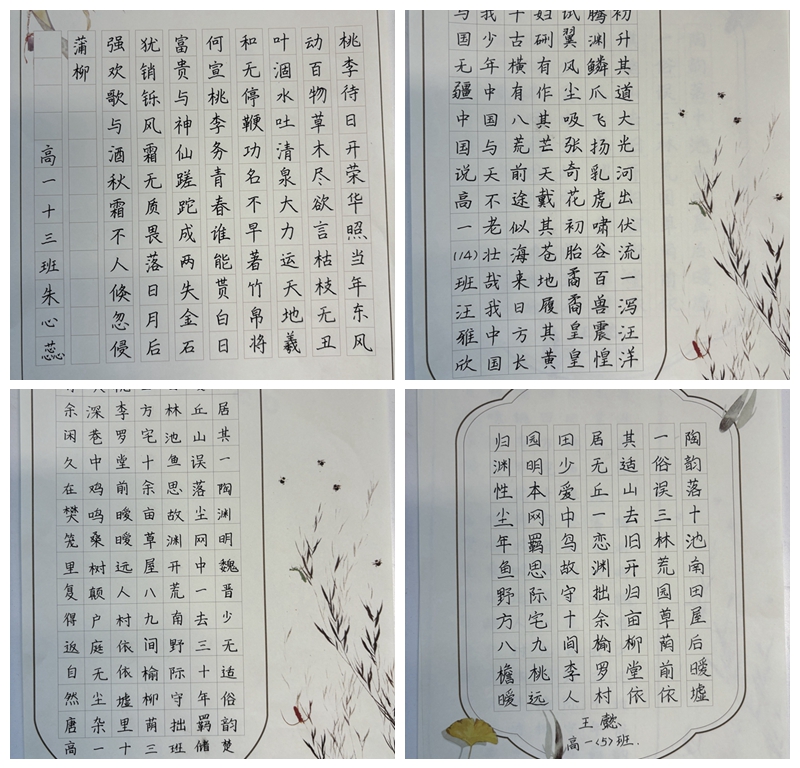 桃李待日开荣华照当年东风
动百物草木尽欲言枯枝无丑
叶涸水吐清泉大力运天地羲
和无停鞭功名不早著竹帛将
何宣桃李务青春谁能贳白日
富贵与神仙蹉跎成两失金石
犹销铄风霜无质畏落日月后
强欢歌与酒秋霜不人倏忽侵
蒲柳
高一十三班朱心蕊
初升其道大光河出伏流一泻汪洋
腾渊鳞爪飞扬乳虎啸谷百兽震惶
试翼风尘吸张奇花初胎矞矞皇皇
硎有作其芒天戴其苍地履其黄
千古横有八荒前途似海来日方长
我少年中国与天不老壮哉我中国
与国无疆中国说高一(14)班汪雅欣
居其一陶渊明魏晋少无适俗韵
丘山误落尘网中一去三十年羁
林池鱼思故渊开荒南野际守拙
方宅十余亩草屋八九间榆柳荫
李罗堂前暧暧远人村依依墟里
深巷中鸡鸣桑树颠户庭无尘杂
余闲久在樊笼里复得返自然唐
高一十三班储楚
陶韵落十池南田屋后暧墟
一俗误三林荒园草荫前依
其适山去旧开归亩柳堂依
居无丘一恋渊拙余榆罗村
田少爱中鸟故守十间李人
园明本网羁思际宅九桃远
归渊性尘年鱼野方八檐暧
王懿
高一(5)班.